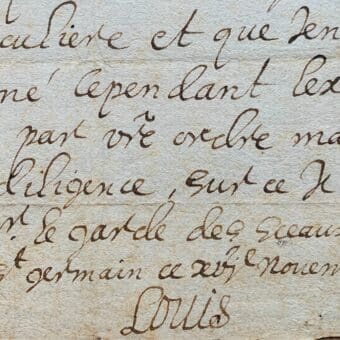 culiere et que Jen
né cependant lex
par vre ordre ma
diligence, sur ce Je
sr. le garde des sceaux
st germain ce xvie Novem
Louis